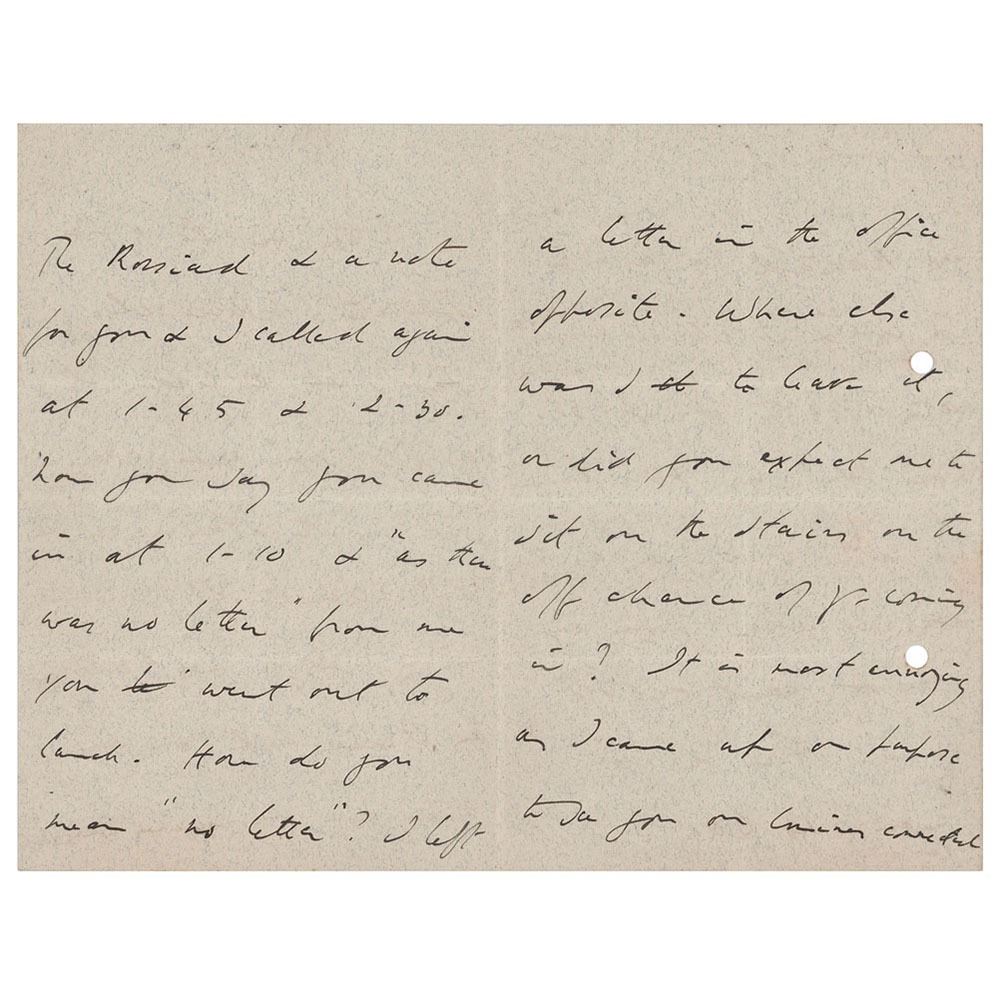 The Rossiad & a note
for you & I called again
at 1-45 & 2-30.
Now you say you came
in at 1-10 & "as there
was no letter" from me
you went out to
lunch. How do you
mean "no letter"? I left
a letter in the office
opposite. Where else
was I to leave it,
or did you expect me to
sit on the stairs on the
off chance of yr coming
in? It is most annoying
as I came up on purpose
to see you on business connected